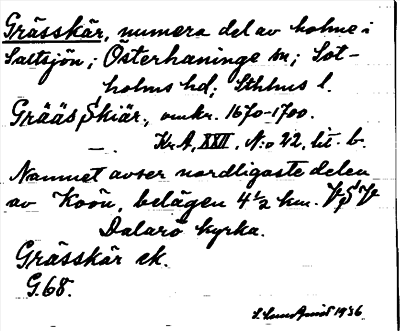 Grässkär, numera del av holme i
Saltsjön; Österhaninge sn; Sot-
holms hd; Sthlms l.
Grääs Skiär, omkr. 1670-1700.
Kr.A, XXVI, N:o 22, lit. b.
Namnet avser nordligaste delen
av Koön, belägen 4 1/2 km. VSV
Dalarö kyrka.
Grässkär ek.
G.68.
1936